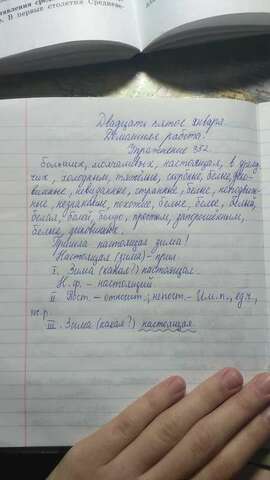 явления сре
. В первые столетия Средне-
Двадцать пятое января.
Домашняя работа.
Упражнение 352.
больших, молчаливых, настоящая, в
них, холодным, тяжёлые, сугробы, белые,
ванные, невиданные, странные, белые, неподвиж-
ные, незнакомые, похожие, белые, белые, белый,
белая, белой, белую, простым, запорошенным,
белые, диковинные.
Пришла настоящая зима!
Настоящая (зима) - прил.
I. Зима (какая?) настоящая.
Н.ф. - настоящий
II Пост. - относит.; непост. - И.п., ед.ч.,
ж.р.
III. Зима (какая?) настоящая